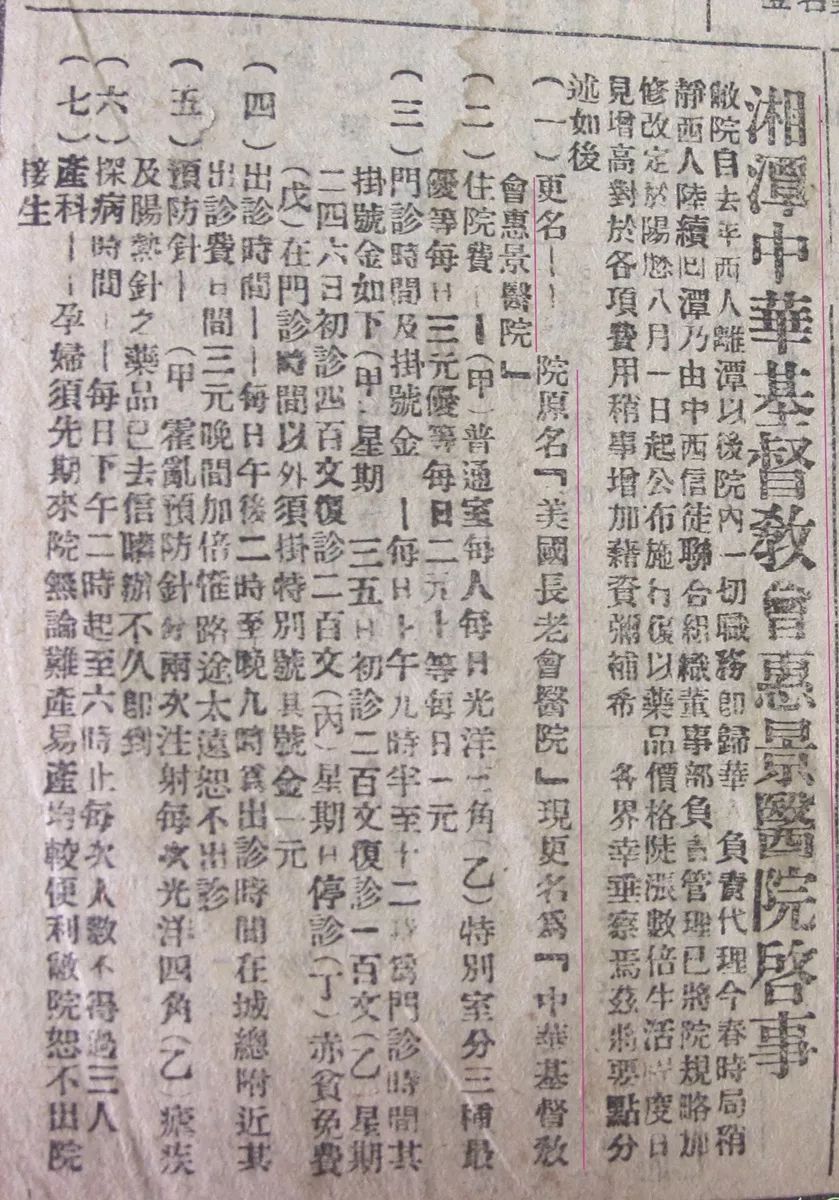 湘潭中華基督教會惠景醫院啓事
敝院自去年西人離潭以後院內一切職務即歸華 負責代理今春時局稍
靜西人陸續回潭乃由中西信徒聯合組織董事部負責管理已將院規略加
修改定於陽歷八月一日起公布施行復以藥品價格陡漲數倍生活 度日
見增高對於各項費用稍事增加藉資彌補希 各界幸垂察焉茲將要點分
述如後
(一)更名—— 院原名『美國長老會醫院』現更名爲『中華基督教
會惠景醫院』
(二)住院費——(甲)普通室每人每日光洋三角(乙)特別室分三種最
優等每日三元優等每日二元 等每日一元
(三)門診時間及掛號金 —每日上午九時半至十二 爲門診時間其
掛號金如下(甲)星期 三五日初診二百文復診一百文(乙)星期
二四六日初診四百文復診二百文(丙)星期日停診(丁)赤貧免費
(戊)在門診時間以外須掛特別號其號金一元
(四)出診時間——每日午後二時至晚九時爲出診時間在城總附近其
出診費日間三元晚間加倍惟路途太遠恕不出診
(五)預防針— (甲 霍亂預防針分兩次注射每次光洋四角(乙)
及腸熱針之藥品已去信購辦不久即到
(六)探病時間——每日下午二時起至六時止每次人數不得過三人
(七)產科——孕婦須先期來院無論難產易產均較便利敝院恕不出院
接生